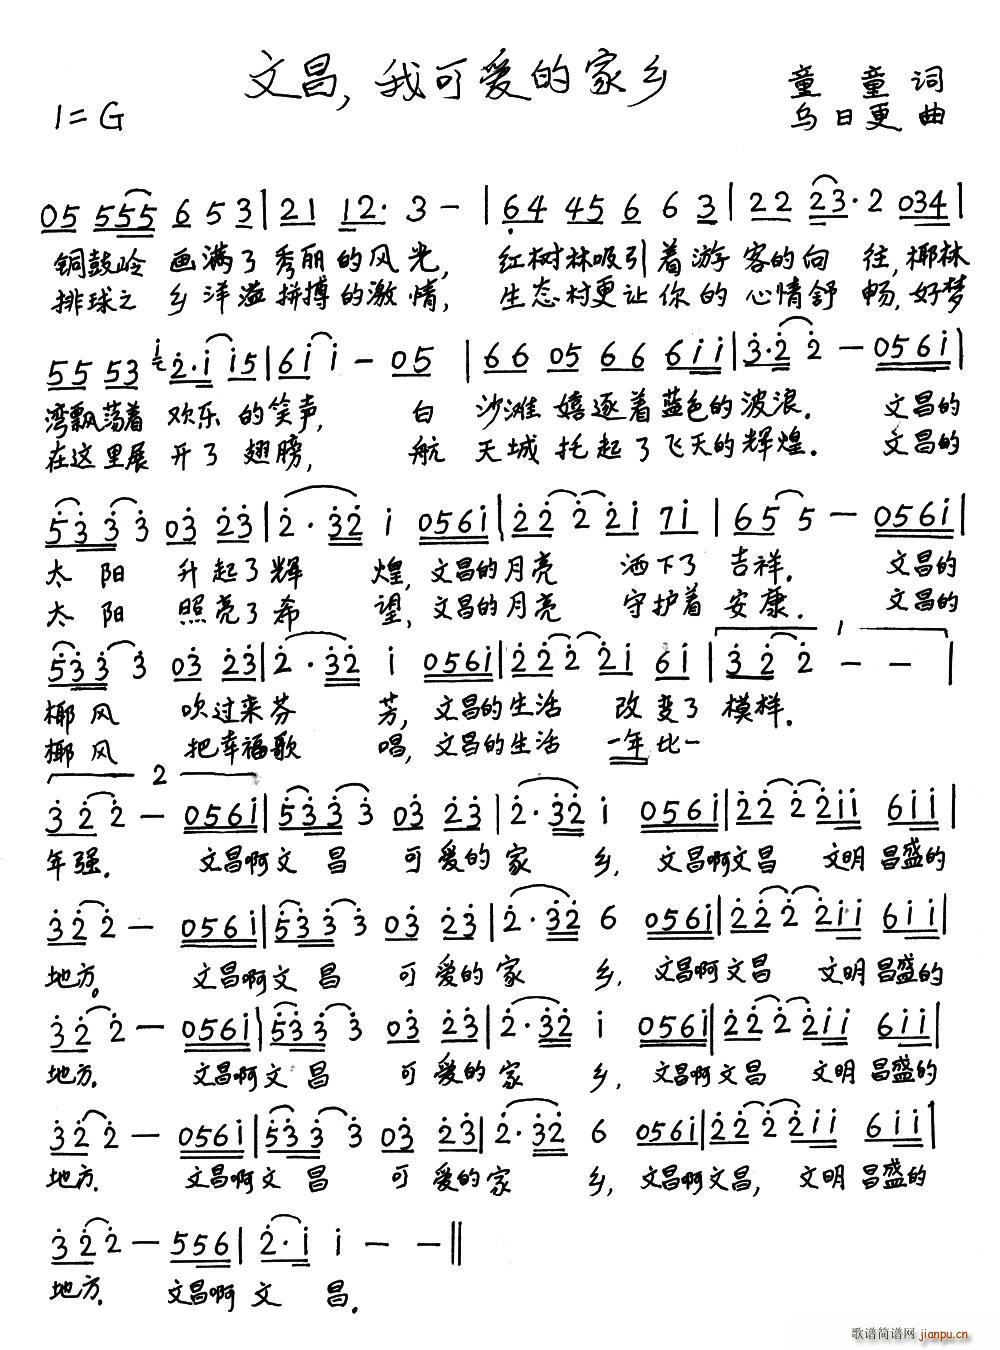 文昌,我可爱的家乡
童童词
1=G
乌日更曲
05 555 6 5 3 | 21 12· 3 - | 64 45 6 6 3 | 22 23·2 034 |
铜鼓岭 画满了秀丽的风光, 红树林吸引着游客的向往,椰林
排球之乡洋溢拼搏的激情, 生态村更让你的心情舒畅,好梦
55 53 2·i i5 | 6i i - 05 | 66 05 66 6ii | 3·2 2 - 056i |
湾飘荡着欢乐的笑声, 白沙滩嬉逐着蓝色的波浪. 文昌的
在这里展开了翅膀, 航天城托起了飞天的辉煌. 文昌的
533 3 03 23 | 2·32 i 056i | 22 2 2i 7i | 65 5 - 056i |
太阳 升起了辉煌,文昌的月亮 洒下了吉祥. 文昌的
太阳 照亮了希望,文昌的月亮 守护着安康. 文昌的
1
533 3 03 23 | 2·32 i 056i | 22 2 2i 6i | 32 2 - - |
椰风 吹过来芬芳,文昌的生活 改变了模样.
椰风 把幸福歌唱,文昌的生活 一年比一
2
32 2 - 056i | 533 3 03 23 | 2·32 i 056i | 22 2 2ii 6ii |
年强. 文昌啊文昌 可爱的家乡,文昌啊文昌 文明昌盛的
32 2 - 056i | 533 3 03 23 | 2·32 6 056i | 22 2 2ii 6ii |
地方。 文昌啊文昌 可爱的家乡,文昌啊文昌 文明昌盛的
32 2 - 056i | 533 3 03 23 | 2·32 i 056i | 22 2 2ii 6ii |
地方. 文昌啊文昌 可爱的家乡,文昌啊文昌 文明昌盛的
32 2 - 056i | 533 3 03 23 | 2·32 6 056i | 22 2 2ii 6ii |
地方. 文昌啊文昌 可爱的家乡,文昌啊文昌, 文明昌盛的
32 2 - 556 | 2·i i - - ‖
地方. 文昌啊文昌.
歌谱简谱网
jianpu.cn